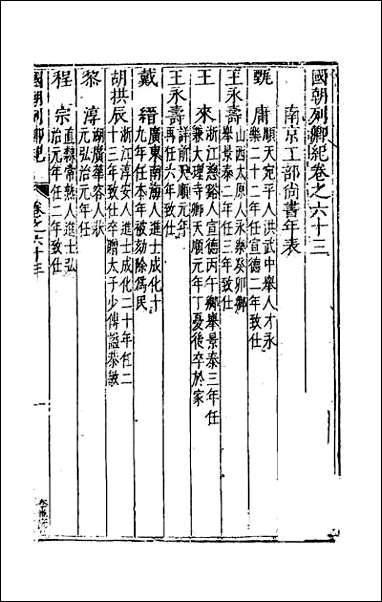 國朝列卿紀卷之六十三
南京工部尚書年表
甄庸
順天宛平人洪武中舉人才永
樂二十二年任宣德二年致仕
王永壽
山西太原人永樂癸卯鄉
舉景泰二年任三年致仕
王來
浙江慈谿人宣德丙午鄉舉景泰三年任
兼大理寺卿天順元年丁憂後卒於家
王永壽
詳前天順元年
再任六年致仕
戴縉
廣東南海人進士成化十
九年任本年被劾除為民
胡拱辰
浙江淳安人進士成化二十年任二
十三年致仕卒贈太子少傅謚恭敏
黎淳
湖廣華容人狀
元弘治元年任
程宗
直隸常熟人進士弘
治元年任二年致仕
國朝列卿紀
卷之六十三
一